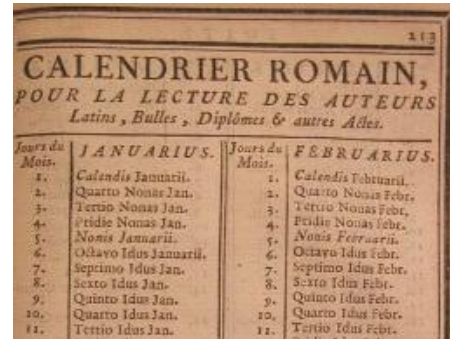 213
CALENDRIER ROMAIN,
POUR LA LECTURE DES AUTEURS
Latins, Bulles, Diplômes & autres Actes.
Jours du Mois. JANUARIUS. Jours du Mois. FEBRUARIUS.
1. Calendis Januarii. 1. Calendis Februarii.
2. Quarto Nonas Jan. 2. Quarto Nonas Febr.
3. Tertio Nonas Jan. 3. Tertio Nonas Febr.
4. Pridie Nonas Jan. 4. Pridie Nonas Febr.
5. Nonis Januarii. 5. Nonis Februarii.
6. Octavo Idus Januarii. 6. Octavo Idus Febr.
7. Septimo Idus Jan. 7. Septimo Idus Febr.
8. Sexto Idus Jan. 8. Sexto Idus Febr.
9. Quinto Idus Jan. 9. Quinto Idus Febr.
10. Quarto Idus Jan. 10. Quarto Idus Febr.
11. Tertio Idus Jan. 11. Tertio Idus Febr.